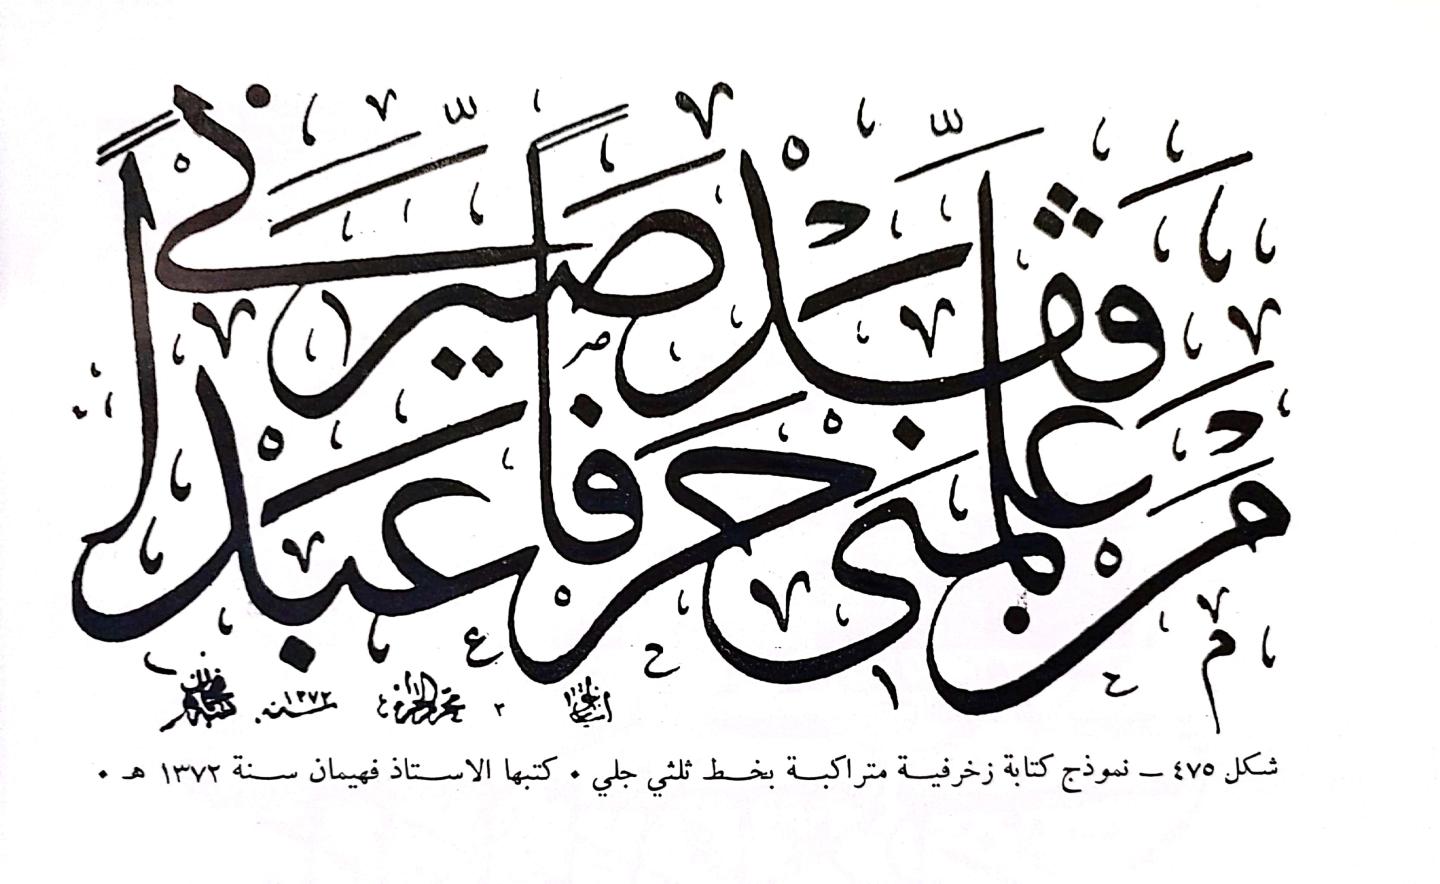 من علمني حرفا فقد صيرني له عبدا
سنة ١٣٧٢
شكل ٤٧٥ ــ نموذج كتابة زخرفية متراكبة بخط ثلثي جلي ٠ كتبها الاستاذ فهيمان سنة ١٣٧٢ هـ ٠